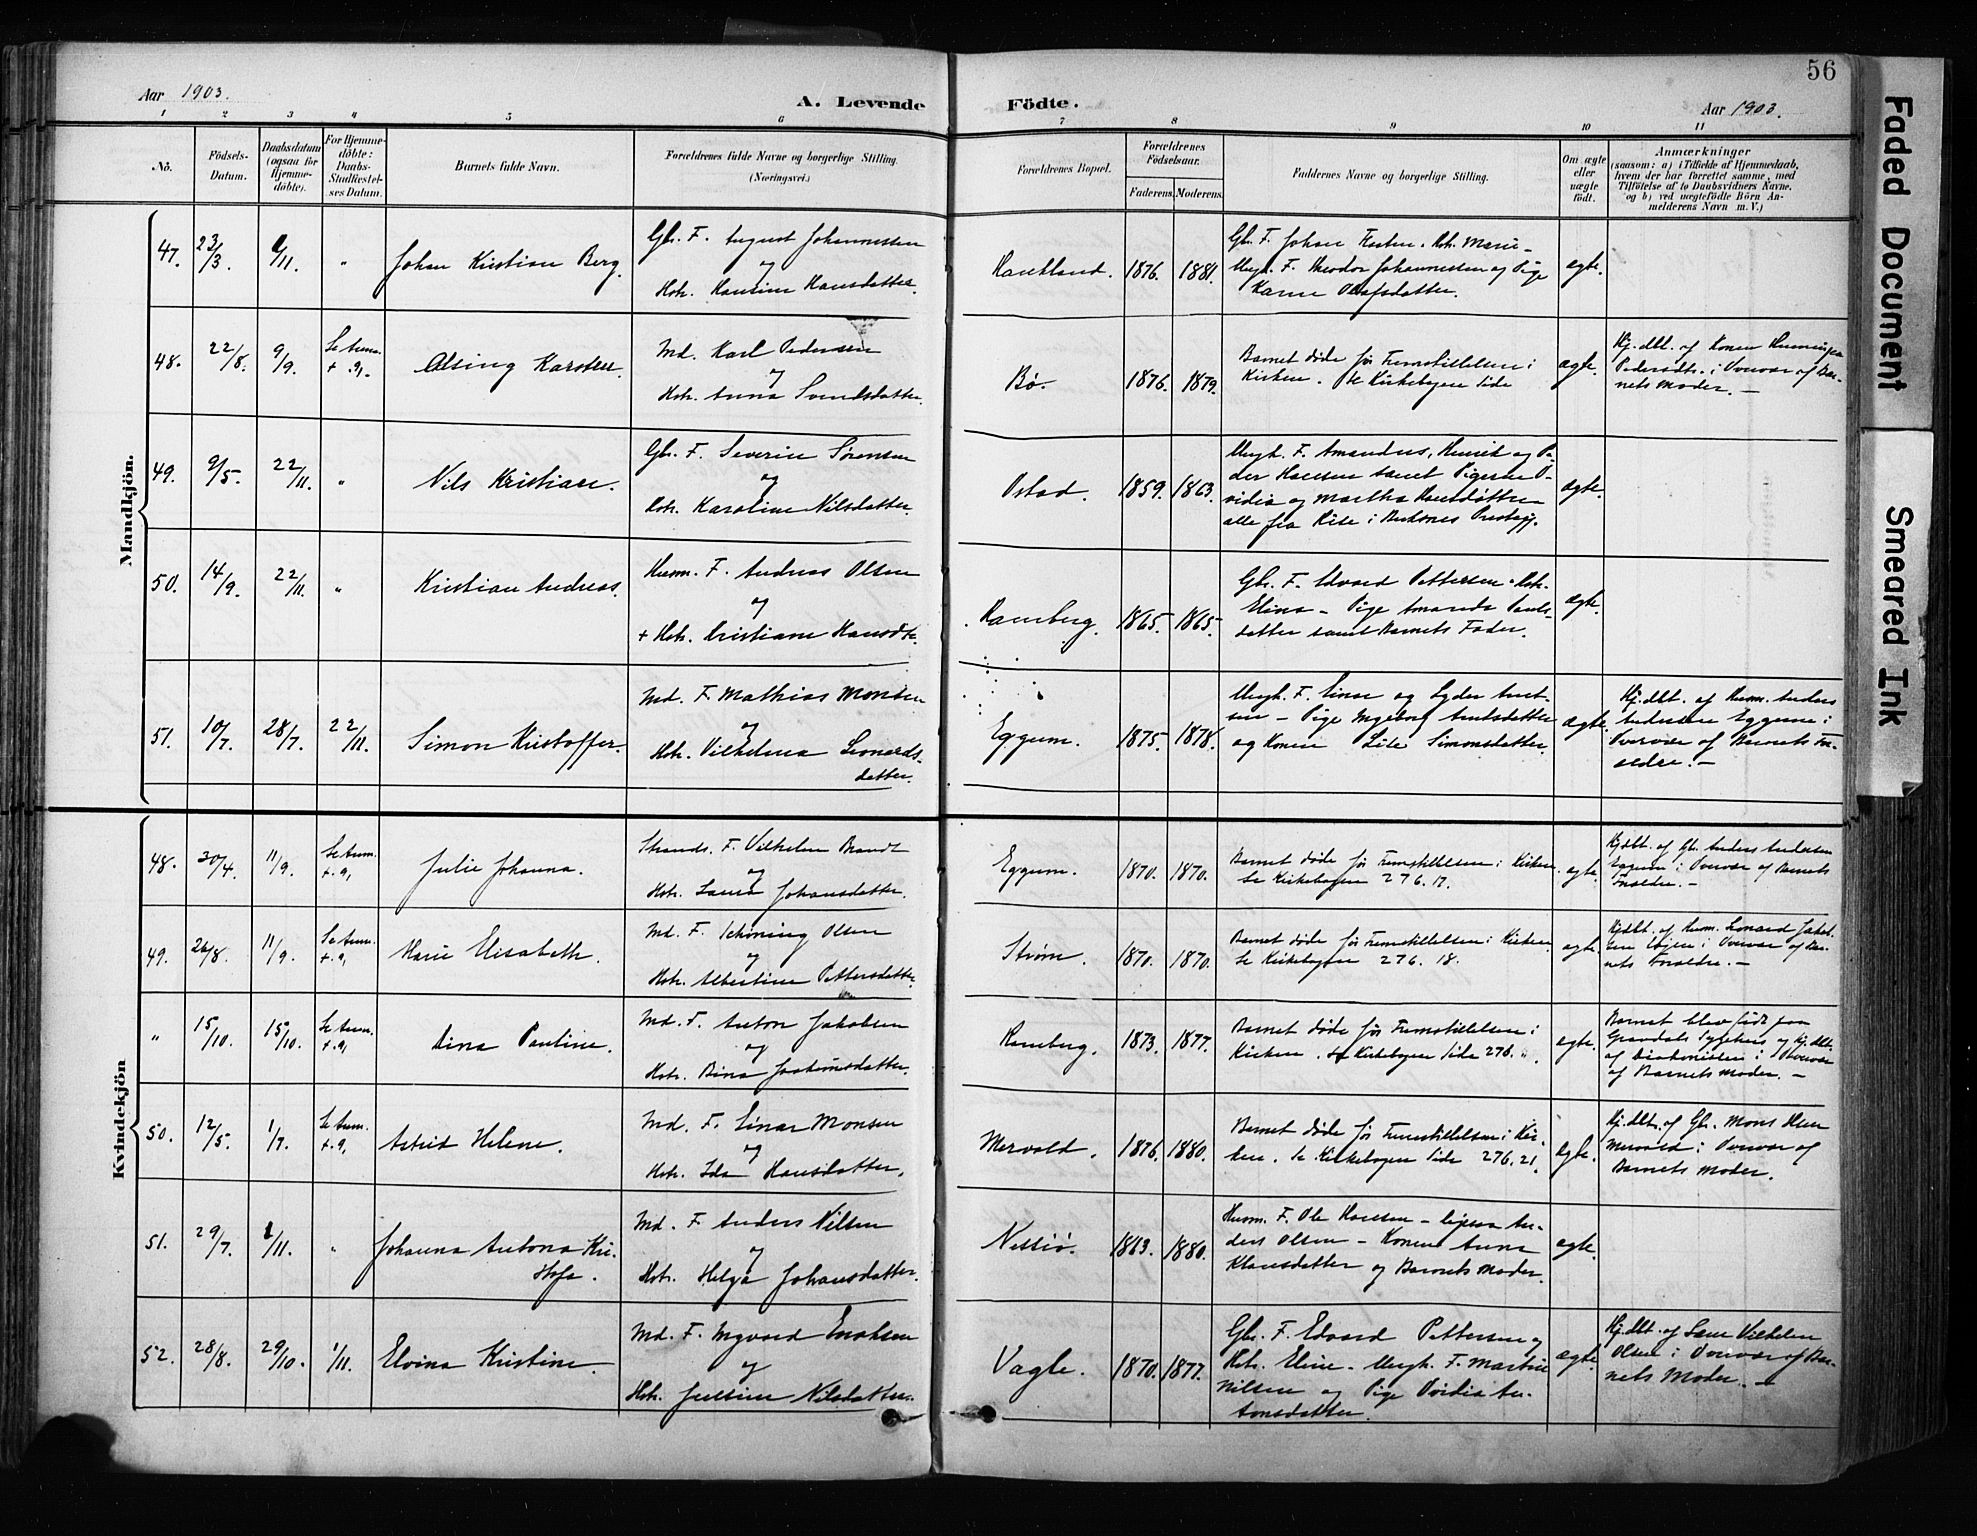 56
Aar 1903.
A. Levende
Födte.
Aar 1903.
1 2 3 4 5 6 7 8 9 10 11
Nô.
Födsels-
Datum.
Daabsdatum
(ogsaa for
Hjemme-
döbte).
For Hjemme-
döbte:
Daabs-
Stadfæstel-
ses Datum.
Barnets fulde Navn.
Forældrenes fulde Navne og borgerlige Stilling.
(Næringsvei.)
Forældrenes Bopæl.
Forældrenes
Födselsaar.
Faderens.
Moderens.
Faddernes Navne og borgerlige Stilling.
Om ægte
eller
uægte
födt.
Anmærkninger
(saasom: a) i Tilfælde af Hjemmedaab,
hvem der har forrettet samme, med
Tilföielse af to Daabsvidners Navne,
og b) ved uægtefödte Börn An-
melderens Navn m. V.)
Mandkjön.
47. 23/3. 1/11. " Johan Kristian Berg.
Gbr. F. August Johannessen
og
Hstr. Hansine Hansdatter.
Haukland. 1876. 1881.
Gbr. F. Johan Hstr. Marie -
Ungk. F. Theodor Johannessen og Pige
Karen Olafsdatter.
ægte.
48. 22/8. 9/9. Se Anm. + 9. Alsing Karsten.
Md. Karl Pedersen
og
Hstr. Anna Svendsdatter.
Bø. 1876. 1879.
Barnet døde før Fremstillelsen i
Kirken. Se Kirkebogen Side
ægte.
Hj.dbt. af Konen
Pedersdtr. i Overvær af Bar-
nets Moder. -
49. 9/5. 22/11. " Nils Kristian.
Gbr. F. Severin Sørensen
og
Hstr. Karoline Nilsdatter.
Ostad. 1859. 1863.
Ungk. F. Amandus, Henrik og Pe-
der Hansen samt Pigerne O-
vidia og Martha Hansdøttre
alle fra Rise i Buksnes Prestegj.
ægte.
50. 14/9. 22/11. " Kristian Andreas.
Husm. F. Andreas Olsen
og
+ Hstr. Cristiane Hansdtr.
Ramberg. 1865. 1865.
Gbr. F. Edvard Pettersen - Hstr.
Elina - Pige Amanda Pauls-
datter samt Barnets Fader.
ægte.
51. 10/7. 28/7. 22/11. Simon Kristoffer.
Md. F. Mathias Monsen
og
Hstr. Vilhelmina Leonards-
datter.
Eggum. 1875. 1878.
Ungk. F. Einar og Lyder Arnt-
sen - Pige Ingeborg Arntsdatter
og Konen Lise Simonsdatter.
ægte.
Hj.dbt. af Husm. Anders
Andersen Eggum i
Overvær af Barnets For-
ældre. -
Kvindekjön
48. 30/4. 11/9. Se Anm. + 9. Julie Johanna.
Strands. F. Vilhelm Brandt
og
Hstr. Laura Johansdatter.
Eggum. 1870. 1870.
Barnet døde før Fremstillelsen i Kirken
Se Kirkebogen 276. 17.
ægte.
Hj.dbt. af Gbr. Anders Andersen
Eggum i Overvær af Barnets
Forældre. -
49. 26/8. 11/9. Se Anm. + 9. Marie Elisabeth.
Md. F. Schøning Olsen
og
Hstr. Albertine Pettersdatter.
Strøm. 1870. 1870.
Barnet døde før Fremstillelsen i Kirken
Se Kirkebogen 276. 18.
ægte.
Hj.dbt. af Husm. Leonard Jakob-
sen i Overvær af Bar-
nets Forældre. -
" 15/10. 15/10. Se Anm. + 9. Dina Pauline.
Md. F. Anton Jakobsen
og
Hstr. Bina Joakimsdatter.
Ramberg. 1873. 1877.
Barnet døde før Fremstillelsen i
Kirken. Se Kirkebogen Side 276. ".
ægte.
Barnet blev født paa
Gravdals Sygehus og Hj.dbt.
af Diakonissen i Overvær
af Barnets Moder. -
50. 12/5. 1/7. Se Anm. + 9. Astrid Helene.
Md. F. Einar Monsen
og
Hstr. Ida Hansdatter.
Mervold. 1876. 1880.
Barnet døde før Fremstillelsen i Kir-
ken. Se Kirkebogen Side 276. 21.
ægte.
Hj.dbt. af Gbr. Mons Olsen
Mervold i Overvær af
Barnets Moder.
51. 29/7. 1/11. " Johanna Antona Kri-
stofa.
Md. F. Anders Nilsen
og
Hstr. Helga Johansdatter.
1863. 1880.
Husm. F. Ole Hansen - An-
ders Olsen - Konen Anna
Klausdatter og Barnets Moder.
ægte.
52. 28/8. 29/10. 1/11. Elvina Kristine.
Md. F. Ingvard Enoksen
og
Hstr. Julsine Nilsdatter.
Vagle. 1870. 1877.
Gbr. F. Edvard Pettersen og
Hstr. Eline - Ungk. F. Martin
Nilsen og Pige Ovidia An-
tonsdatter.
ægte.
Hj.dbt. af Vilhelm
Olsen i Overvær af Bar-
nets Moder. -
Faded Document
Smeared Ink